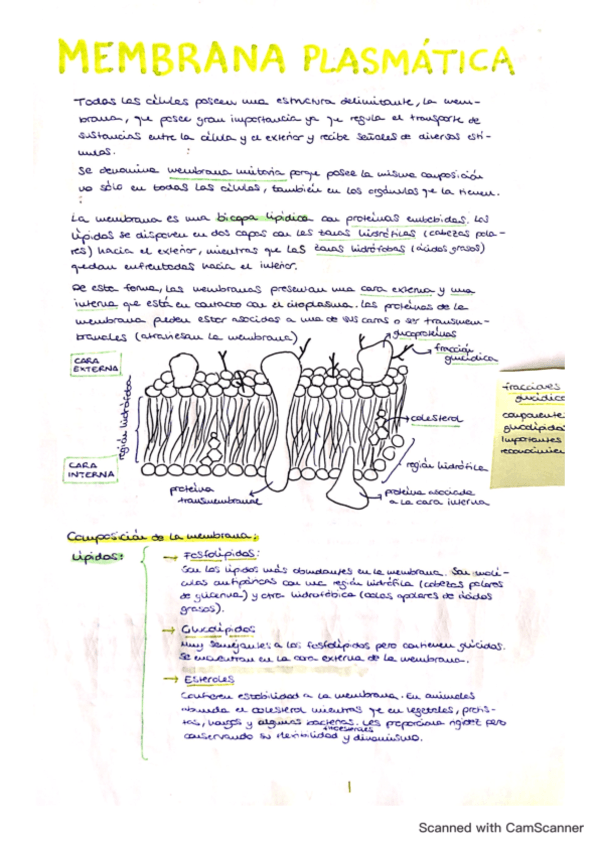 MEMBRANA PLASMÁTICA
Todas las células poseen una estructura delimitante, la mem-
brana, que posee gran importancia ya que regula el transporte de
sustancias entre la célula y el exterior y recibe señales de diversos estí-
mulos.
Se denomina membrana unitaria porque posee la misma composición
no sólo en todas las células, también en los orgánulos que la tienen.
La membrana es una bicapa lipídica con proteínas embebidas. Los
lípidos se disponen en dos capas con las zonas hidrófilas (cabezas pola-
res) hacia el exterior, mientras que las zonas hidrófobas (ácidos grasos)
quedan enfrentadas hacia el interior.
De esta forma, las membranas presentan una cara externa y una
interna que está en contacto con el citoplasma. Las proteínas de la
membrana pueden estar asociadas a una de sus caras o ser transmem-
branales (atraviesan la membrana)
glucoproteínas
fracción
glucídica
CARA
EXTERNA
región hidrófoba
fracciones
glucídica
componente
glucolípidos
Importantes
reconocimien
colesterol
región hidrófila
CARA
INTERNA
proteína
transmembranal
proteína asociada
a la cara interna
Composición de la membrana:
Lípidos:
→ Fosfolípidos:
Son los lípidos más abundantes en la membrana. Son molé-
culas antipáticas con una región hidrófila (cabezas polares
de glicerina) y otra hidrofóbica (colas apolares de ácidos
grasos).
→ Glucolípidos
Muy semejantes a los fosfolípidos pero contienen glúcidos.
Se encuentran en la cara externa de la membrana.
→ Esteroles
Confieren estabilidad a la membrana. En animales
abunda el colesterol mientras que en vegetales, protis-
tas, hongos y algunas bacterias. Les proporciona rigidez pero
conservando su flexibilidad y dinamismo.
1
Scanned with CamScanner